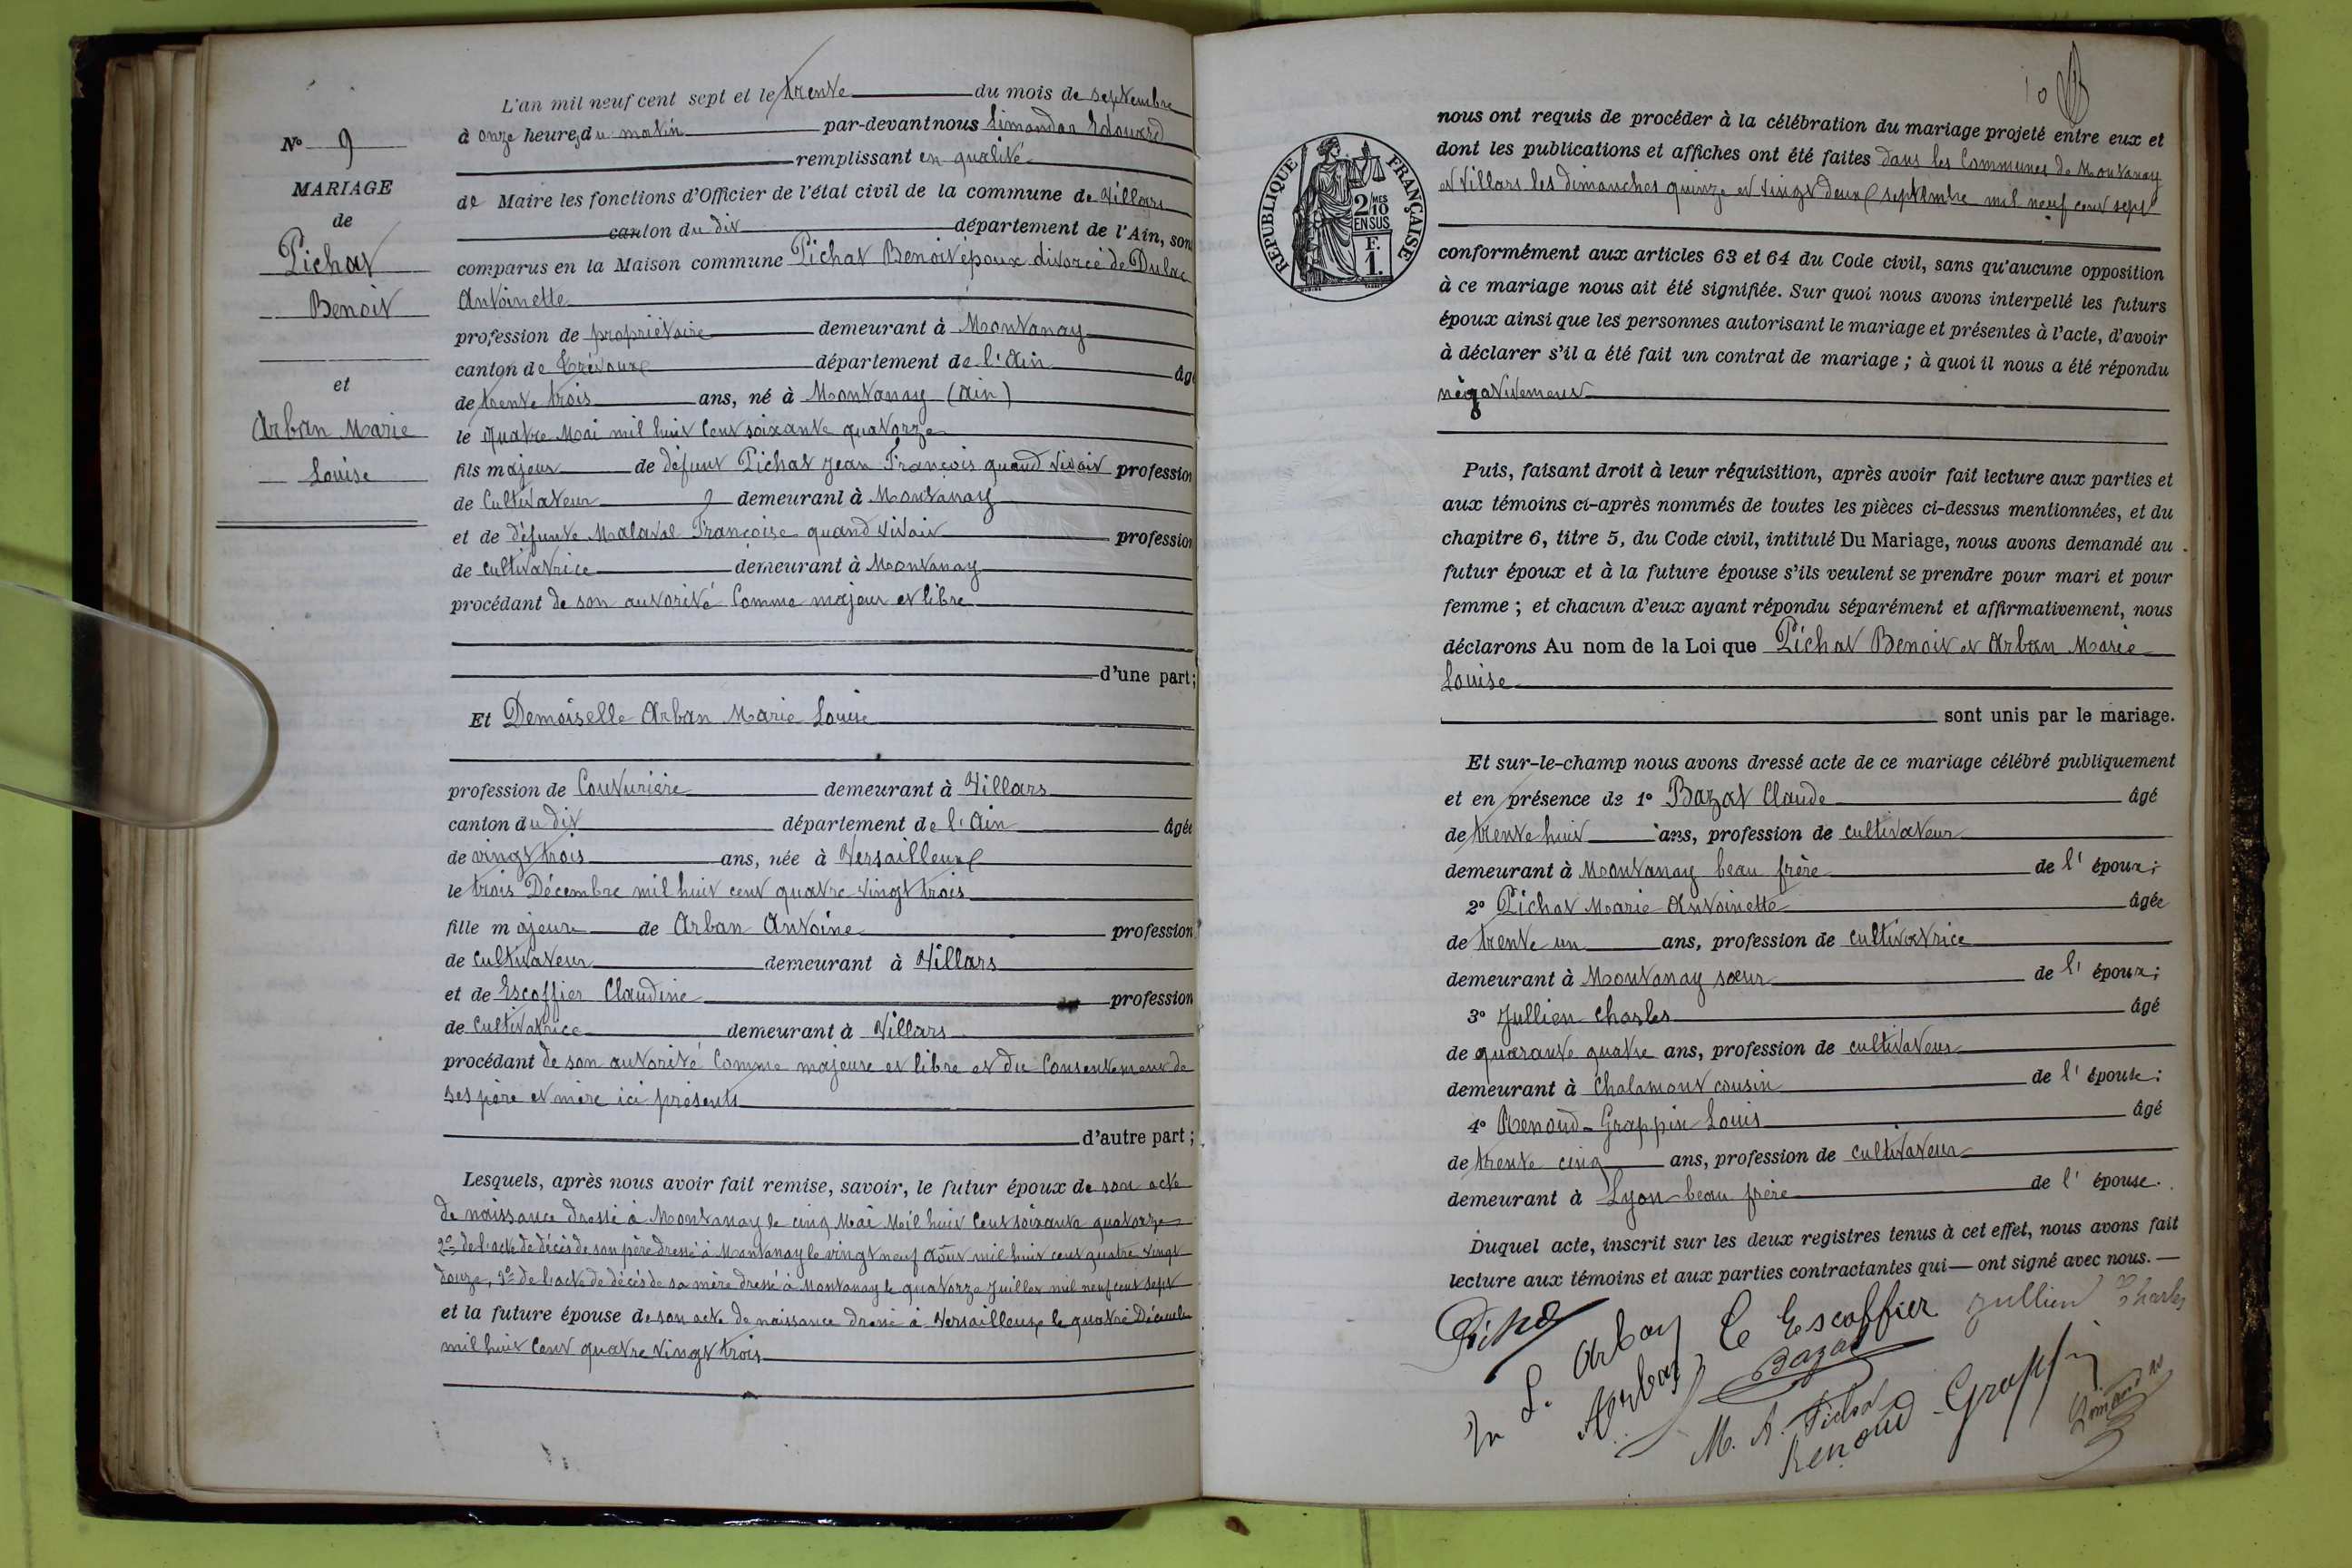 N° 9
MARIAGE
de
Pichat
Benoit
et
Arban Marie
Louise
L'an mil neuf cent sept et le trente du mois de septembre
à onze heures du matin par-devant nous Limandas Edouard
remplissant en qualité
de Maire les fonctions d'Officier de l'état civil de la commune de Villars
canton du dit département de l'Ain, sont
comparus en la Maison commune Pichat Benoit époux divorcé de Dulac
Antoinette
profession de propriétaire demeurant à Montanay
canton de Trévoux département de l'Ain âgé
de trente trois ans, né à Montanay (Ain)
le quatre Mai mil huit cent soixante quatorze
fils majeur de défunt Pichat Jean François quand vivait profession
de Cultivateur demeurant à Montanay
et de défunte Malaval Françoise quand vivait profession
de cultivatrice demeurant à Montanay
procédant de son autorité comme majeur et libre
d'une part;
Et Demoiselle Arban Marie Louise
profession de Couturière demeurant à Villars
canton du dit département de l'Ain âgée
de vingt trois ans, née à Versailleux
le trois Décembre mil huit cent quatre vingt trois
fille majeure de Arban Antoine profession
de cultivateur demeurant à Villars
et de Escoffier Claudine profession
de Cultivatrice demeurant à Villars
procédant de son autorité comme majeure et libre et du consentement de
ses père et mère ici présents
d'autre part;
Lesquels, après nous avoir fait remise, savoir, le futur époux de son acte
de naissance dressé à Montanay le cinq Mai Mil huit cent soixante quatorze
2° de l'acte de décès de son père dressé à Montanay le vingt neuf août mil huit cent quatre vingt
douze, 3° de l'acte de décès de sa mère dressé à Montanay le quatorze Juillet mil neuf cent sept
et la future épouse de son acte de naissance dressé à Versailleux le quatre Décembre
mil huit cent quatre vingt trois
10
RÉPUBLIQUE FRANÇAISE
2 MES
10
EN SUS
F.
1.
nous ont requis de procéder à la célébration du mariage projeté entre eux et
dont les publications et affiches ont été faites dans les Communes de Montanay
et Villars les dimanches quinze et vingt deux septembre mil neuf cent sept
conformément aux articles 63 et 64 du Code civil, sans qu'aucune opposition
à ce mariage nous ait été signifiée. Sur quoi nous avons interpellé les futurs
époux ainsi que les personnes autorisant le mariage et présentes à l'acte, d'avoir
à déclarer s'il a été fait un contrat de mariage; à quoi il nous a été répondu
négativement
Puis, faisant droit à leur réquisition, après avoir fait lecture aux parties et
aux témoins ci-après nommés de toutes les pièces ci-dessus mentionnées, et du
chapitre 6, titre 5, du Code civil, intitulé Du Mariage, nous avons demandé au
futur époux et à la future épouse s'ils veulent se prendre pour mari et pour
femme; et chacun d'eux ayant répondu séparément et affirmativement, nous
déclarons Au nom de la Loi que Pichat Benoit et Arban Marie
Louise
sont unis par le mariage.
Et sur-le-champ nous avons dressé acte de ce mariage célébré publiquement
et en présence de 1° Bazat Claude âgé
de trente huit ans, profession de cultivateur
demeurant à Montanay beau frère de l'époux;
2° Pichat Marie Antoinette âgée
de trente un ans, profession de cultivatrice
demeurant à Montanay sœur de l'époux;
3° Jullien Charles âgé
de quarante quatre ans, profession de cultivateur
demeurant à Chalamont cousin de l'épouse;
4° Renoud-Grappin Louis âgé
de trente cinq ans, profession de cultivateur
demeurant à Lyon beau frère de l'épouse.
Duquel acte, inscrit sur les deux registres tenus à cet effet, nous avons fait
lecture aux témoins et aux parties contractantes qui ont signé avec nous.
Pichat
M L. Arban C Escoffier Jullien Charles
Arban Bazat
M. A. Pichat
Renoud Grappin Limandas